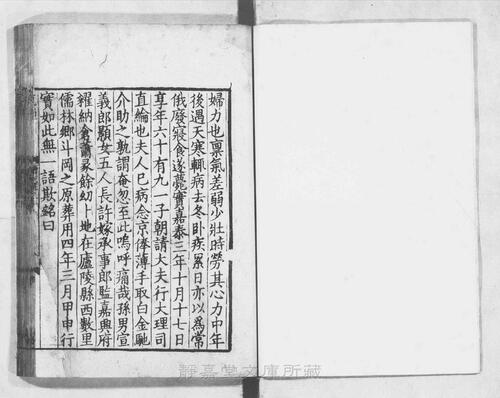 婦力也禀氣差弱少壯時勞其心力中年
後遇天寒輒病去冬卧疾累日亦以爲常
俄廢寢食遂薨實嘉泰三年十月十七日
享年六十有九一子朝請大夫行大理司
直綸也夫人已病念京俸薄手取白金馳
介助之孰謂奄忽至此嗚呼痛哉孫男宣
義郎顒女五人長許嫁承事郎監嘉興府
糴納倉蕭
餘幻卜地在廬陵縣西數里
儒林鄉斗岡之原葬用四年三月甲申行
實如此無一語欺銘曰
靜嘉堂文庫所藏